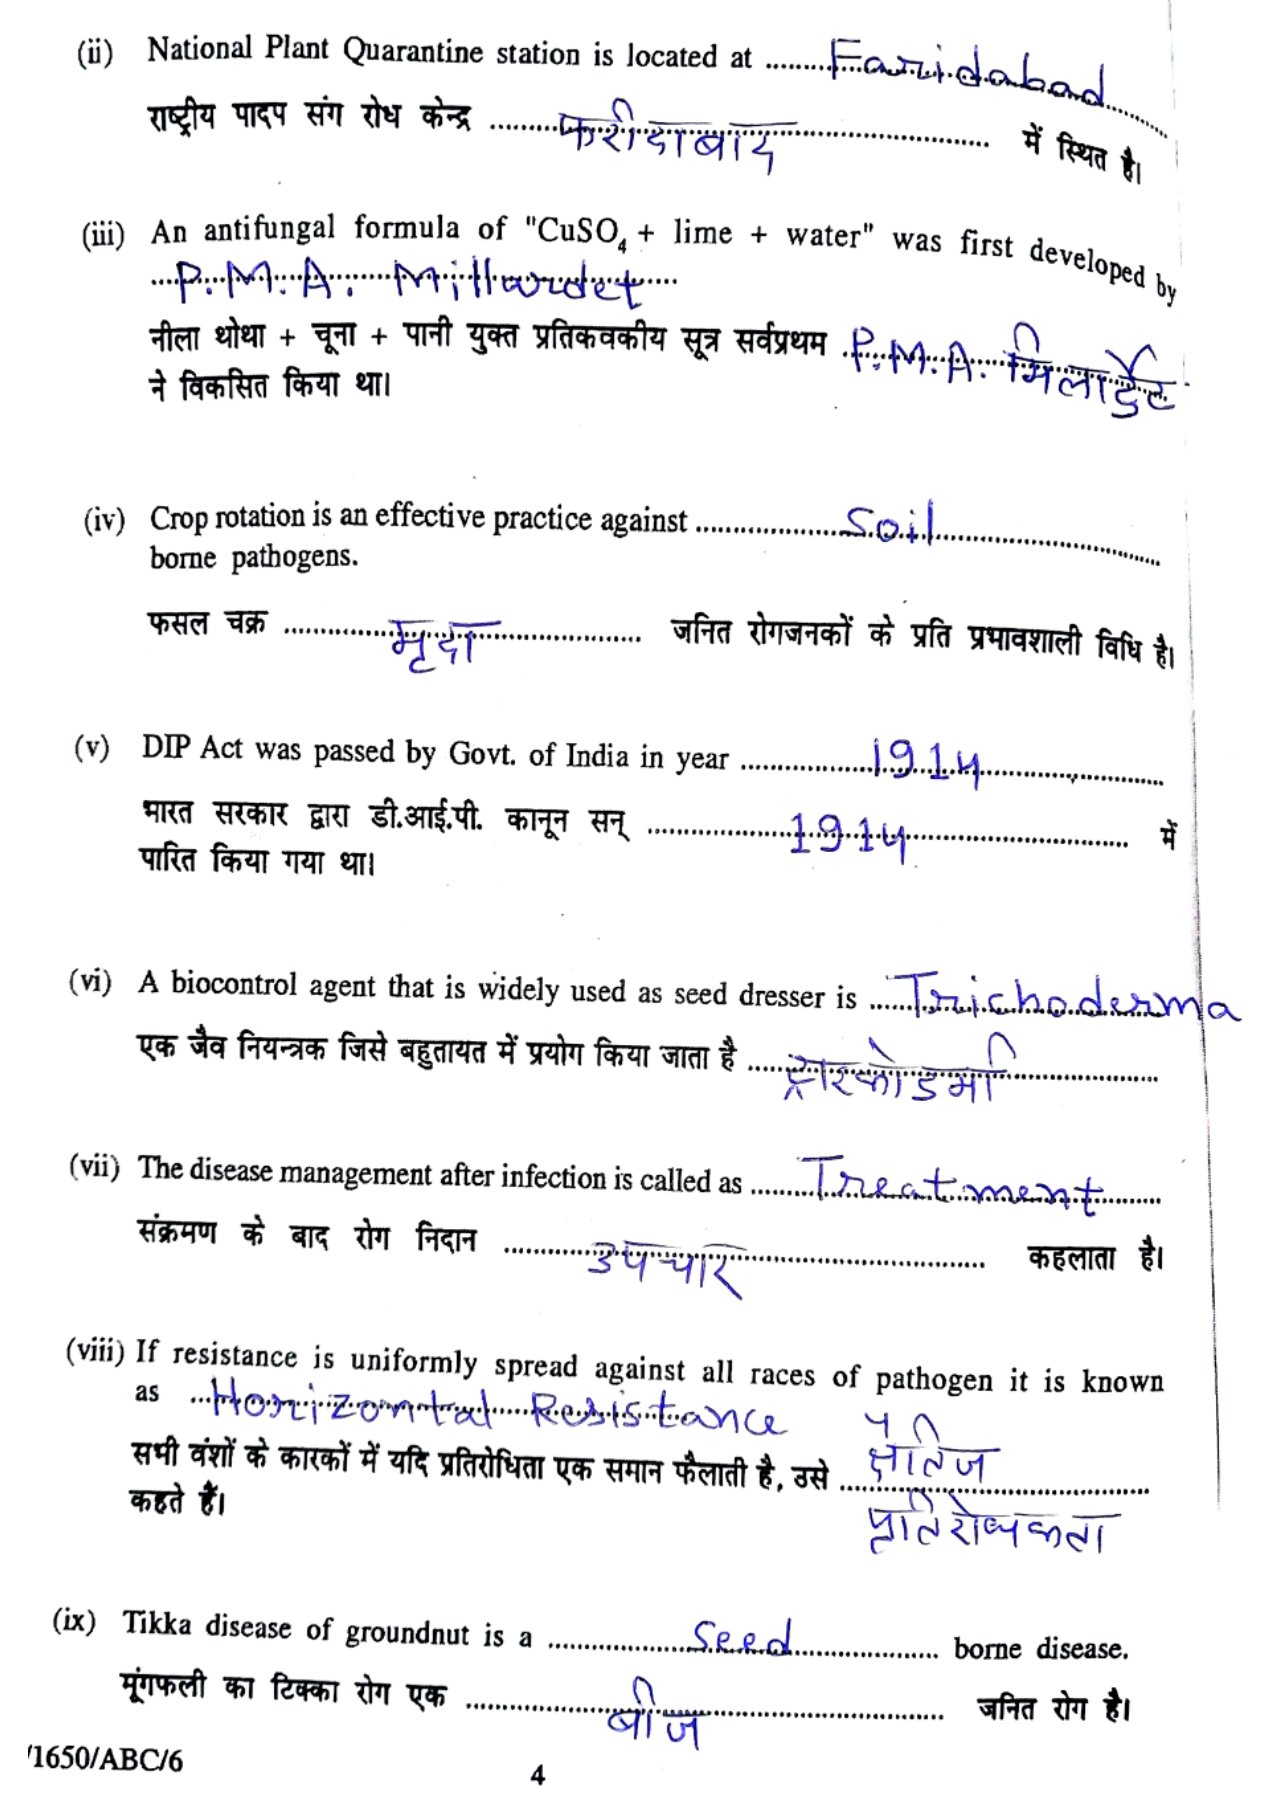 (ii) National Plant Quarantine station is located at ........Faridabad........
राष्ट्रीय पादप संग रोध केन्द्र ........फरीदाबाद........ में स्थित है।
(iii) An antifungal formula of "CuSO4 + lime + water" was first developed by
........P.M.A. Millardet........
नीला थोथा + चूना + पानी युक्त प्रतिकवकीय सूत्र सर्वप्रथम ........P.M.A. मिलार्डेट
ने विकसित किया था।
(iv) Crop rotation is an effective practice against ........Soil........
borne pathogens.
फसल चक्र ........मृदा........ जनित रोगजनकों के प्रति प्रभावशाली विधि है।
(v) DIP Act was passed by Govt. of India in year ........1914........
भारत सरकार द्वारा डी.आई.पी. कानून सन् ........1914........ में
पारित किया गया था।
(vi) A biocontrol agent that is widely used as seed dresser is ........Trichoderma
एक जैव नियन्त्रक जिसे बहुतायत में प्रयोग किया जाता है ........
(vii) The disease management after infection is called as ........Treatment........
संक्रमण के बाद रोग निदान ........उपचार........ कहलाता है।
(viii) If resistance is uniformly spread against all races of pathogen it is known
as ........Horizontal Resistance
क्षैतिज
सभी वंशों के कारकों में यदि प्रतिरोधिता एक समान फैलाती है, उसे ........
कहते हैं।
प्रतिरोधकता
(ix) Tikka disease of groundnut is a ........Seed........ borne disease.
मूंगफली का टिक्का रोग एक ........बीज........ जनित रोग है।
/1650/ABC/6
4